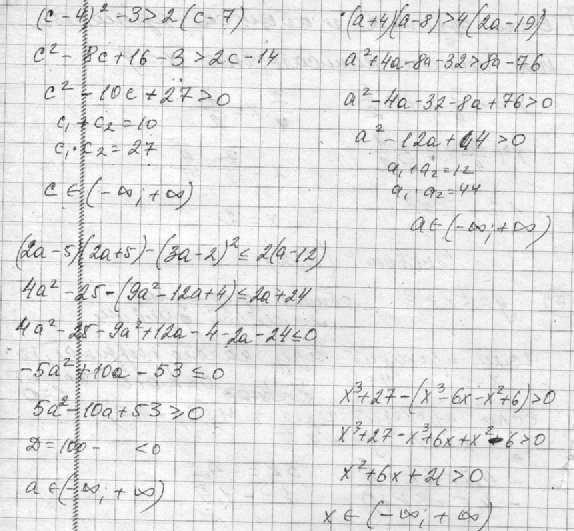 (c-4)² -3>2(c-7)
c² -8c+16-3>2c-14
c² -10c+27>0
c₁+c₂=10
c₁·c₂=27
c∈(-∞;+∞)
(a+4)(a-8)>4(2a-19)
a²+4a-8a-32>8a-76
a²-4a-32-8a+76>0
a²-12a+44>0
a₁+a₂=12
a₁·a₂=44
a∈(-∞;+∞)
(2a-5)(2a+5)-(3a-2)²≤2(a-12)
4a²-25-(9a²-12a+4)≤2a+24
4a²-25-9a²+12a-4-2a-24≤0
-5a²+10a-53≤0
5a²-10a+53≥0
D=100- <0
a∈(-∞;+∞)
x³+27-(x³-6x-x²+6)>0
x³+27-x³+6x+x²-6>0
x²+6x+21>0
x∈(-∞;+∞)